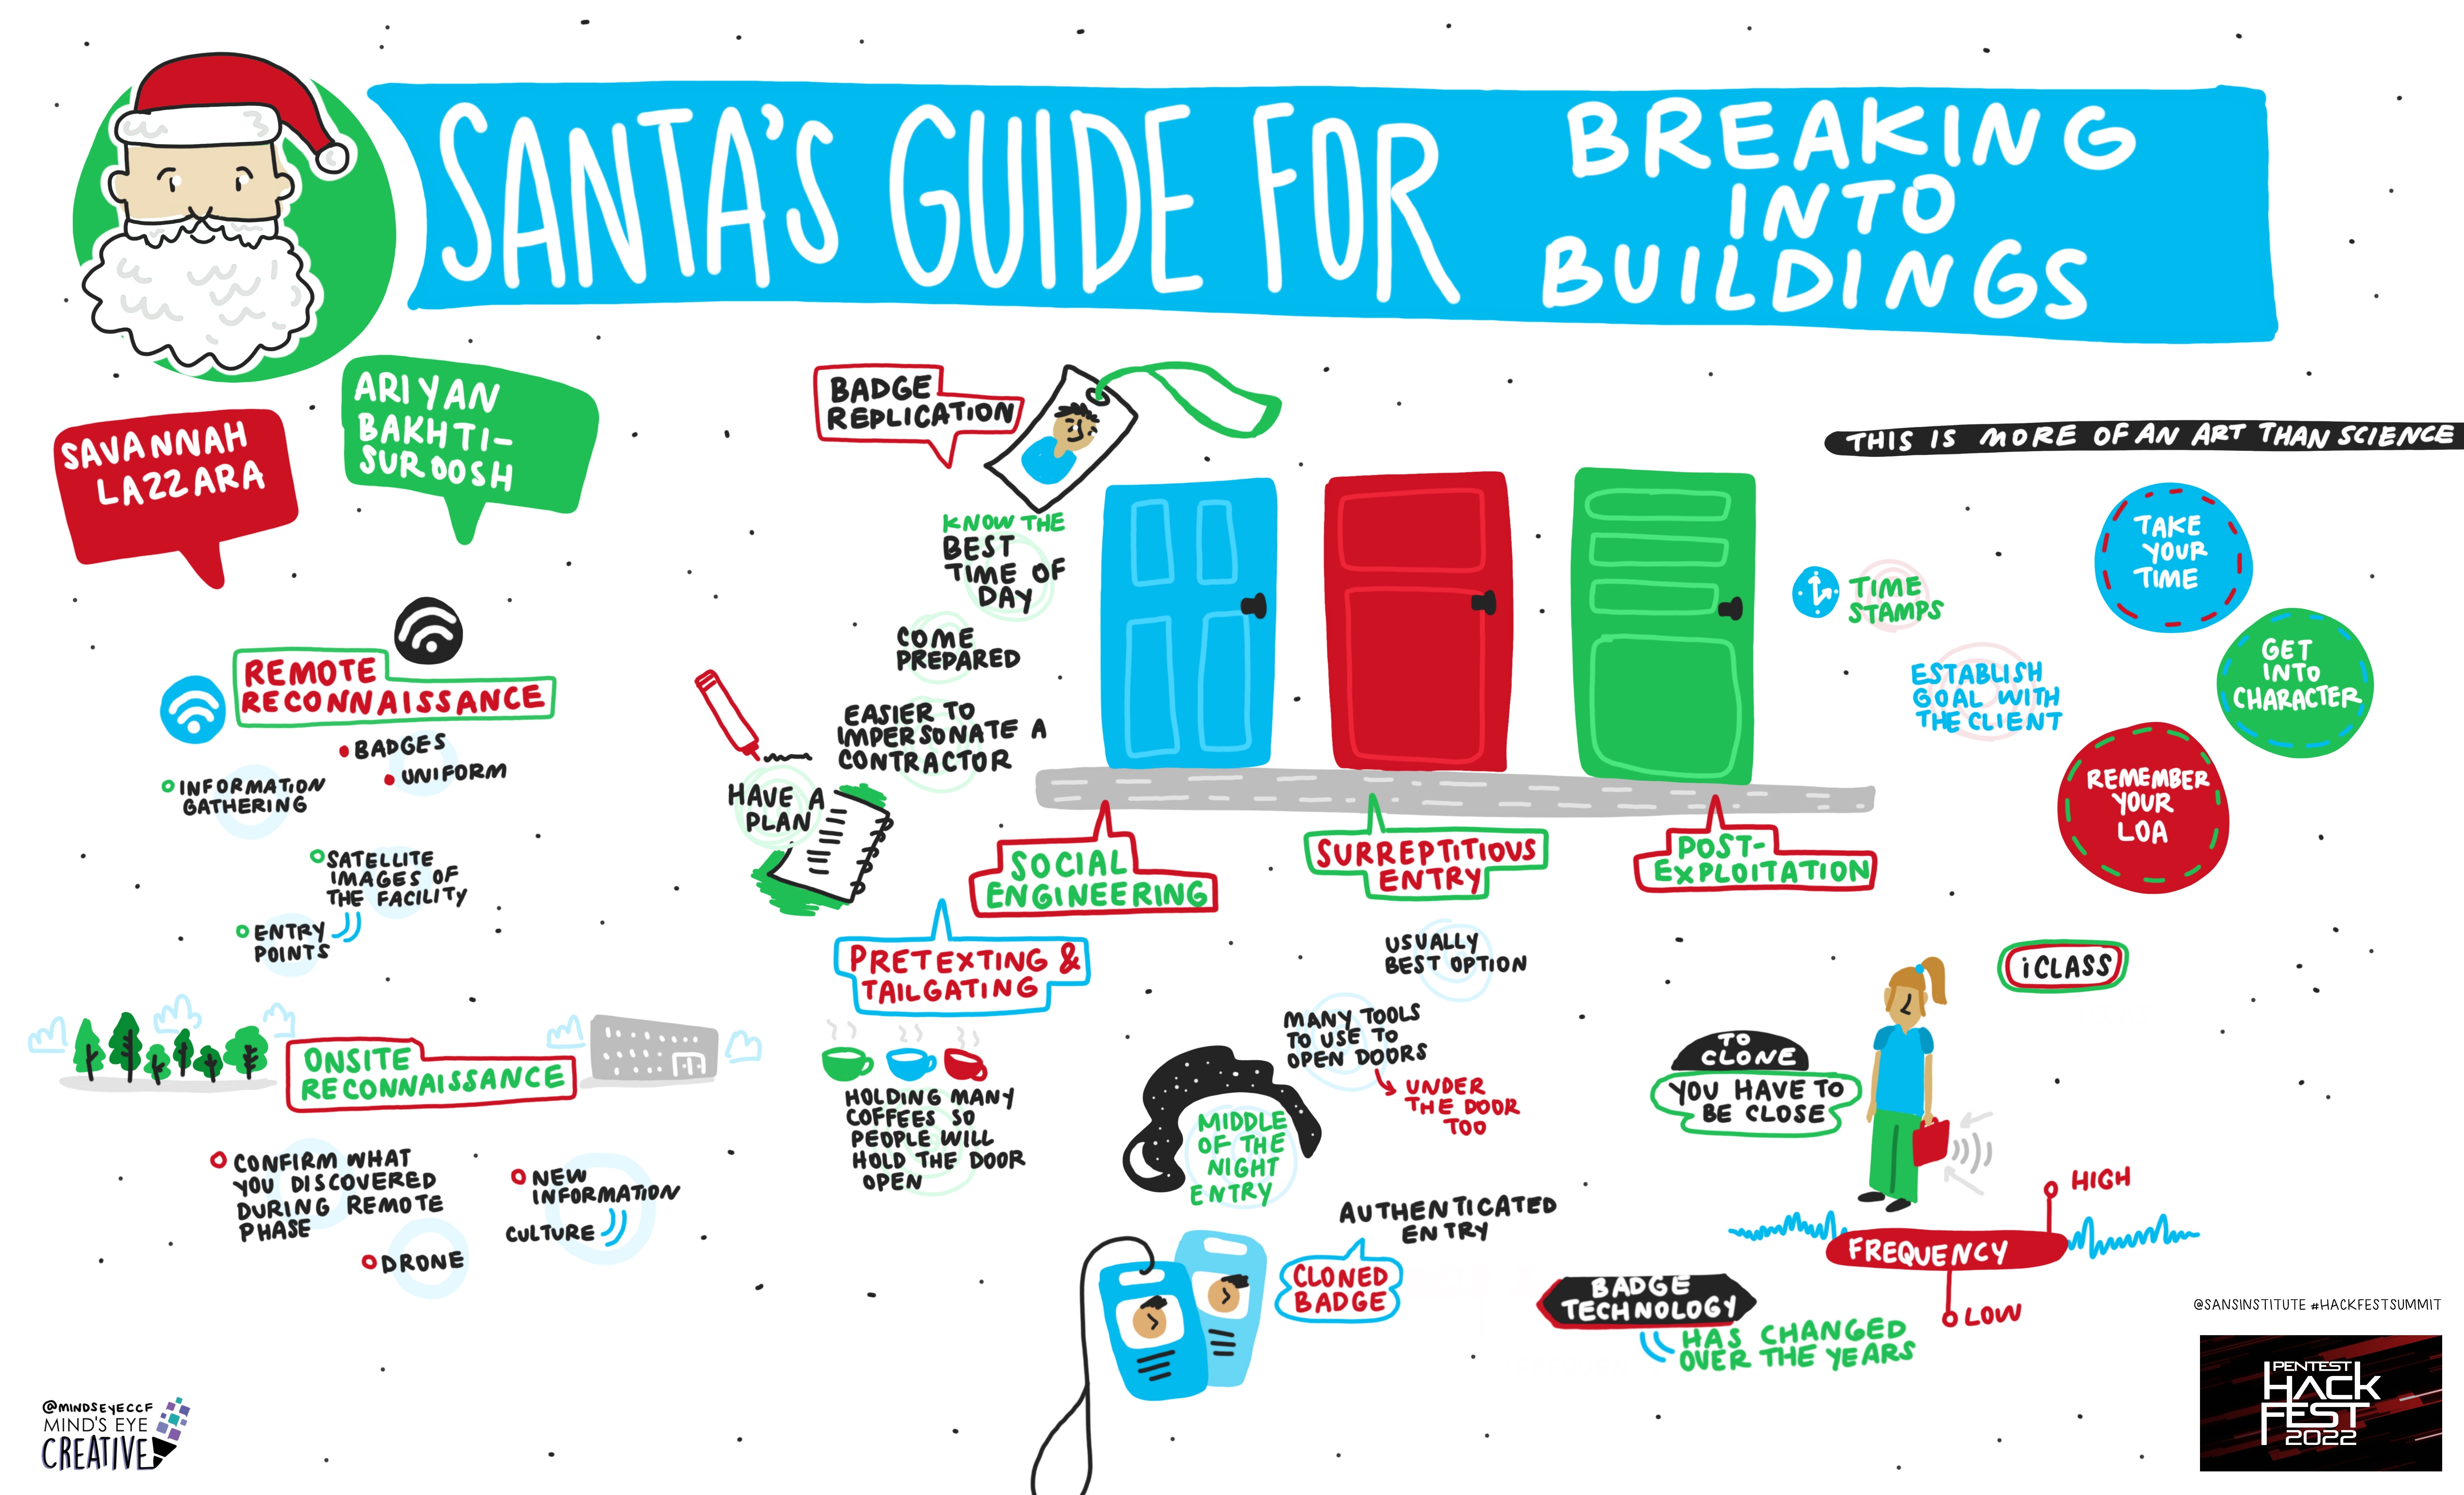 SANTA'S GUIDE FOR
BREAKING
INTO
BUILDINGS
SAVANNAH
LAZZARA
ARIYAN
BAKHTI-
SUROOSH
REMOTE
RECONNAISSANCE
BADGES
UNIFORM
INFORMATION
GATHERING
SATELLITE
IMAGES OF
THE FACILITY
ENTRY
POINTS
ONSITE
RECONNAISSANCE
CONFIRM WHAT
YOU DISCOVERED
DURING REMOTE
PHASE
NEW
INFORMATION
CULTURE
DRONE
BADGE
REPLICATION
KNOW THE
BEST
TIME OF
DAY
COME
PREPARED
EASIER TO
IMPERSONATE A
CONTRACTOR
HAVE A
PLAN
SOCIAL
ENGINEERING
PRETEXTING &
TAILGATING
HOLDING MANY
COFFEES SO
PEOPLE WILL
HOLD THE DOOR
OPEN
SURREPTITIOUS
ENTRY
USUALLY
BEST OPTION
MANY TOOLS
TO USE TO
OPEN DOORS
UNDER
THE DOOR
TOO
MIDDLE
OF THE
NIGHT
ENTRY
AUTHENTICATED
ENTRY
CLONED
BADGE
POST-
EXPLOITATION
THIS IS MORE OF AN ART THAN SCIENCE
TIME
STAMPS
ESTABLISH
GOAL WITH
THE CLIENT
TAKE
YOUR
TIME
GET
INTO
CHARACTER
REMEMBER
YOUR
LOA
iCLASS
TO
CLONE
YOU HAVE TO
BE CLOSE
HIGH
FREQUENCY
LOW
BADGE
TECHNOLOGY
HAS CHANGED
OVER THE YEARS
@SANSINSTITUTE #HACKFESTSUMMIT
PENTEST
HACK
FEST
2022
@MINDSEYECCF
MIND'S EYE
CREATIVE